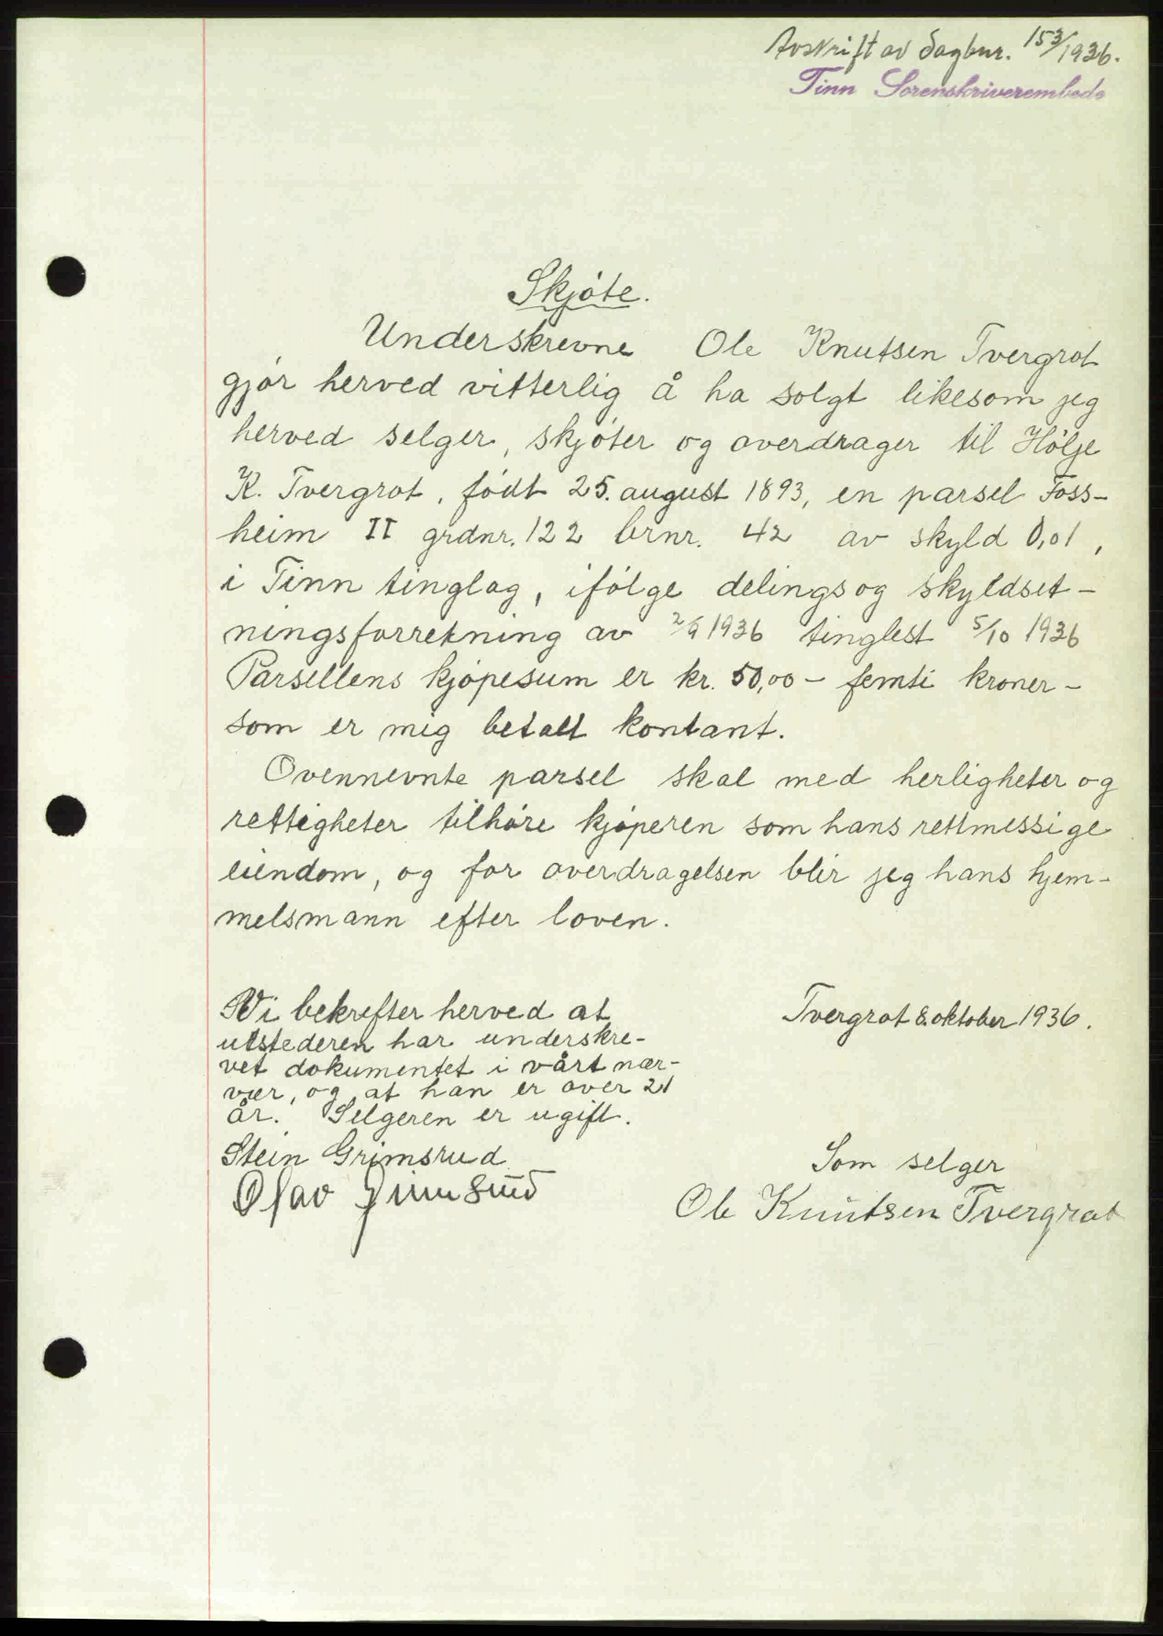 Avskrift av dagbnr. 153/1936.
Tinn Sorenskriverembede
Skjöte.
Underskrevne Ole Knutsen Tvergrot
gjör herved vitterlig å ha solgt likesom jeg
herved selger, skjöter og overdrager til Hölje
K. Tvergrot, födt 25. august 1893, en parsel Foss-
heim II grdnr. 122 brnr. 42 av skyld 0,01,
i Tinn tinglag, ifölge delings og skyldset-
ningsforretning av 2/9 1936 tinglest 5/10 1936
Parsellens kjöpesum er kr. 50,00 - femti kroner -
som er mig betalt kontant.
Ovennevnte parsel skal med herligheter og
rettigheter tilhöre kjöperen som hans rettmessige
eiendom, og for overdragelsen blir jeg hans hjem-
melsmann efter loven.
Vi bekrefter herved at
utstederen har underskre-
vet dokumentet i vårt nær-
vær, og at han er over 21
år. Selgeren er ugift.
Tvergrot 8. oktober 1936.
Stein Grimsrud
Olav Grimsrud
Som selger
Ole Knutsen Tvergrot